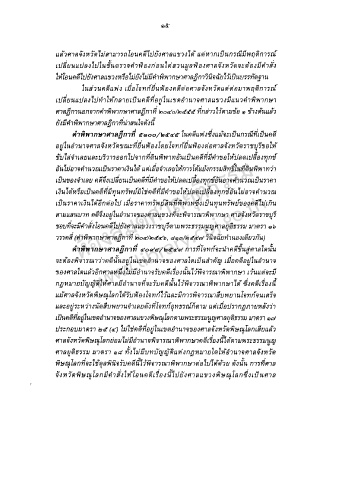 ๑๕
แล้วศาลจังหวัดไม่สามารถโอนคดีไปยังศาลแขวงได้ แต่หากเป็นกรณีมีพฤติการณ์
เปลี่ยนแปลงไปในชั้นตรวจคำฟ้องก่อนไต่สวนมูลฟ้องศาลจังหวัดจะต้องมีคำสั่ง
ให้โอนคดีไปยังศาลแขวงหรือไม่ยังไม่มีคำพิพากษาศาลฎีกาวินิจฉัยไว้เป็นบรรทัดฐาน
ในส่วนคดีแพ่ง เมื่อโจทก์ยื่นฟ้องคดีต่อศาลจังหวัดแต่ต่อมาพฤติการณ์
เปลี่ยนแปลงไปทำให้กลายเป็นคดีที่อยู่ในเขตอำนาจศาลแขวงมีแนวคำพิพากษา
ศาลฎีกานอกจากคำพิพากษาศาลฎีกาที่
ยังมีคำพิพากษาศาลฎีกาที่น่าสนใจดังนี้
คำพิพากษาศาลฎีกาที่ ในคดีแพ่งซึ่งแม้จะเป็นกรณีที่เป็นคดี
อยู่ในอำนาจศาลจังหวัดขณะที่ยื่นฟ้องโดยโจทก์ยื่นฟ้องต่อศาลจังหวัดราชบุรีขอให้
ขับไล่จำเลยและบริวารออกไปจากที่ดินพิพาทอันเป็นคดีที่มีคำขอให้ปลดเปลื้องทุกข์
อันไม่อาจคำนวณเป็นราคาเงินได้ แต่เมื่อจำเลยให้การโต้แย้งกรรมสิทธิ์ในที่ดินพิพาทว่า
เป็นของจำเลย คดีจึงเปลี่ยนเป็นคดีที่มีคำขอให้ปลดเปลื้องทุกข์อันอาจคำนวณเป็นราคา
เงินได้หรือเป็นคดีที่มีทุนทรัพย์มิใช่คดีที่มีคำขอให้ปลดเปลื้องทุกข์อันไม่อาจคำนวณ
เป็นราคาเงินได้อีกต่อไป เมื่อราคาทรัพย์สินที่พิพาทซึ่งเป็นทุนทรัพย์ของคดีไม่เกิน
สามแสนบาท คดีจึงอยู่ในอำนาจของศาลแขวงที่จะพิจารณาพิพากษา ศาลจังหวัดราชบุรี
ชอบที่จะมีคำสั่งโอนคดีไปยังศาลแขวงราชบุรีตามพระธรรมนูญศาลยุติธรรม มาตรา ๑๖
วรรคสี่ (คำพิพากษาศาลฎีกาที่ วินิจฉัยทำนองเดียวกัน)
คำพิพากษาศาลฎีกาที่ การที่โจทก์จะนำคดีขึ้นสู่ศาลใดนั้น
จะต้องพิจารณาว่าคดีนั้นอยู่ในเขตอำนาจของศาลใดเป็นสำคัญ เมื่อคดีอยู่ในอำนาจ
ของศาลใดแล้วอีกศาลหนึ่งไม่มีอำนาจรับคดีเรื่องนั้นไว้พิจารณาพิพากษา เว้นแต่จะมี
กฎหมายบัญญัติให้ศาลมีอำนาจที่จะรับคดีนั้นไว้พิจารณาพิพากษาได้ ซึ่งคดีเรื่องนี้
แม้ศาลจังหวัดพิษณุโลกได้รับฟ้องโจทก์ไว้และมีการพิจารณาสืบพยานโจทก์จนเสร็จ
และอยู่ระหว่างนัดสืบพยานจำเลยดังที่โจทก์อุทธรณ์ก็ตาม แต่เมื่อปรากฏภายหลังว่า
เป็นคดีที่อยู่ในเขตอำนาจของศาลแขวงพิษณุโลกตามพระธรรมนูญศาลยุติธรรม มาตรา ๑๗
ประกอบมาตรา ๒๕ (๔) ไม่ใช่คดีที่อยู่ในเขตอำนาจของศาลจังหวัดพิษณุโลกเสียแล้ว
ศาลจังหวัดพิษณุโลกย่อมไม่มีอำนาจพิจารณาพิพากษาคดีเรื่องนี้ได้ตามพระธรรมนูญ
ศาลยุติธรรม มาตรา ๑๘ ทั้งไม่มีบทบัญญัติแห่งกฎหมายใดให้อำนาจศาลจังหวัด
พิษณุโลกที่จะใช้ดุลพินิจรับคดีนี้ไว้พิจารณาพิพากษาต่อไปได้ด้วย ดังนั้น การที่ศาล
จังหวัดพิษณุโลกมีคำสั่งให้โอนคดีเรื่องนี้ไปยังศาลแขวงพิษณุโลกซึ่งเป็นศาล